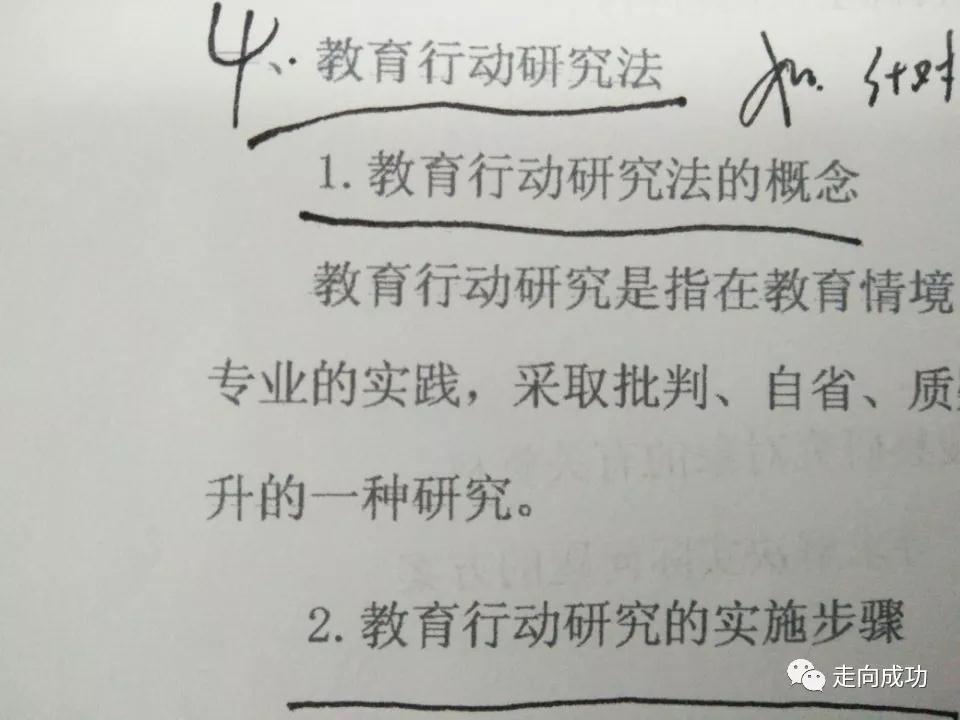 4、教育行动研究法
如 针对
1.教育行动研究法的概念
教育行动研究是指在教育情境
专业的实践，采取批判、自省、质
升的一种研究。
2.教育行动研究的实施步骤
走向成功